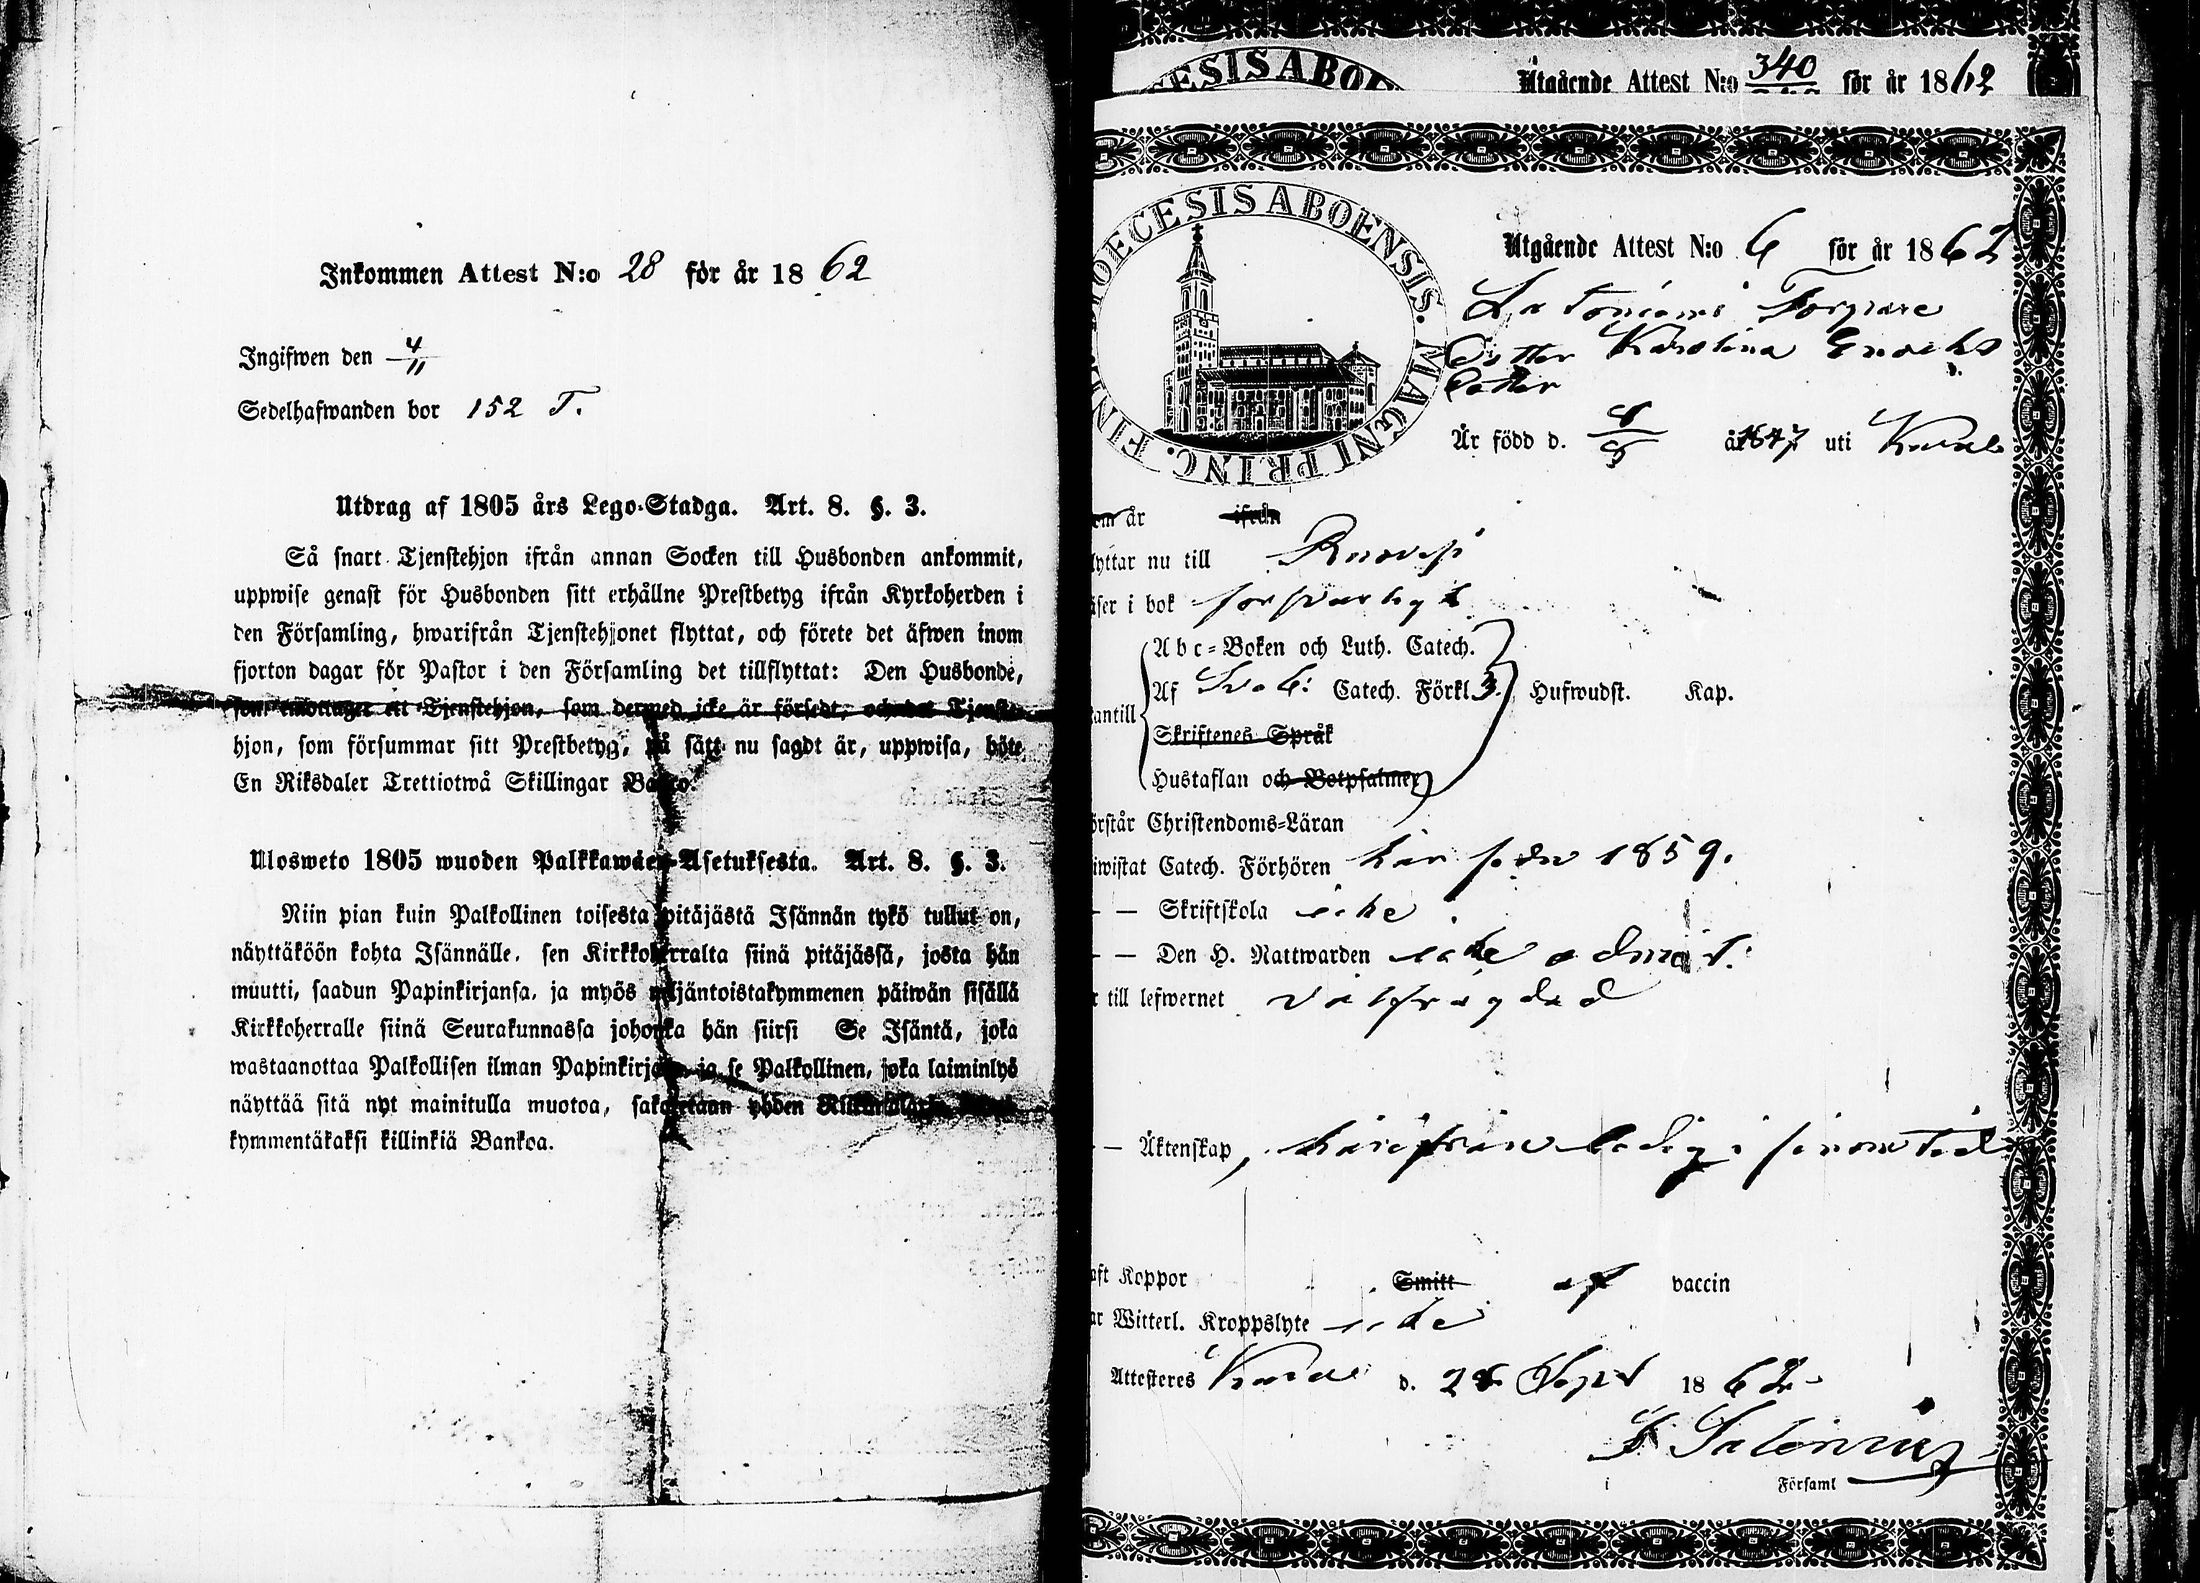 Inkommen Attest N:o 28 för år 1862
Ingifwen den 4/11
Sedelhafwanden bor 152 T.
Utdrag af 1805 års Lego-Stadga. Art. 8. §. 3.
Så snart Tjenstehjon ifrån annan Socken till Husbonden ankommit,
uppwise genast för Husbonden sitt erhållne Prestbetyg ifrån Kyrkoherden i
den Församling, hwarifrån Tjenstehjonet flyttat, och förete det äfwen inom
fjorton dagar för Pastor i den Församling det tillflyttat: Den Husbonde,
som emottager ett Tjenstehjon, som dermed icke är försedt, och det Tjenste-
hjon, som försummar sitt Prestbetyg, på sätt nu sagdt är, uppwisa, böte
En Riksdaler Trettiotwå Skillingar Banko.
Ulosweto 1805 wuoden Palkkawäen-Asetuksesta. Art. 8. §. 3.
Niin pian kuin Palkollinen toisesta pitäjästä Isännän tykö tullut on,
näyttäköön kohta Isännälle, sen Kirkkoherralta siinä pitäjässä, josta hän
muutti, saadun Papinkirjansa, ja myös neljäntoistakymmenen päiwän sisällä
Kirkkoherralle siinä Seurakunnassa johonka hän siirsi Se Isäntä, joka
wastaanottaa Palkollisen ilman Papinkirjata, ja se Palkollinen, joka laiminlyö
näyttää sitä nyt mainitulla muotoa, sakotetaan yhden
kymmentäkaksi killinkiä Bankoa.
ESIS ABOE
Utgående Attest N:o 340 för år 1862
DIOECESIS ABOENSIS. MAGNI PRINC. FIN
Utgående Attest N:o 6 för år 1862
Torpare
Dotter Karolina Enochs
Dotter
Är född d. 8/9 år 1847 uti
om år ifrån
lyttar nu till
äser i bok försvarligt
Abc-Boken och Luth. Catech.
antill Af Sveb: Catech. Förkl 3. Hufwudst. Kap.
Skriftenes Språk
Hustaflan och Botpsalmer
örstår Christendoms-Läran
iwistat Catech. Förhören här sedn 1859.
— — Skriftskola icke
— — Den H. Nattwarden icke admit.
r till lefwernet välfrägdad
— — Äktenskap, härifrån ledig i sinom tid
aft Koppor Smitt af vaccin
ar Witterl. Kroppslyte icke
Attesteres d. 28 Sept 1862
Salonius
i Församl